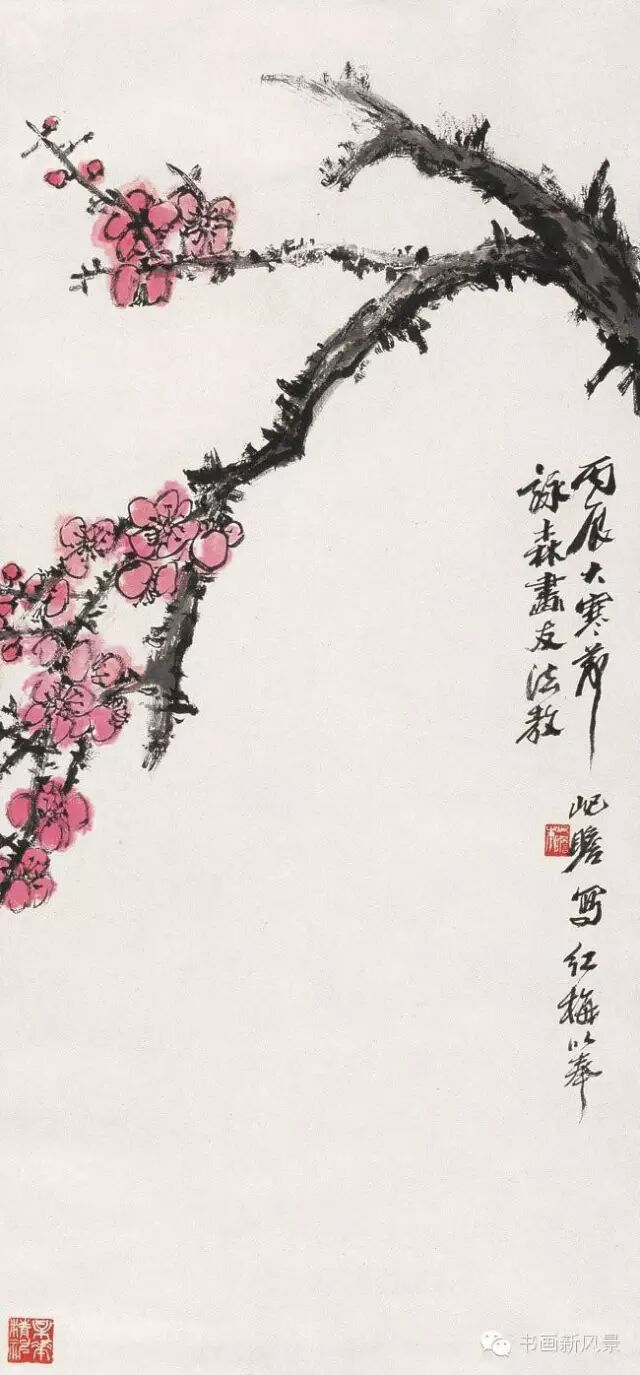 丙辰大寒节 屺瞻写红梅以奉
詠森畵友法教
书画新风景